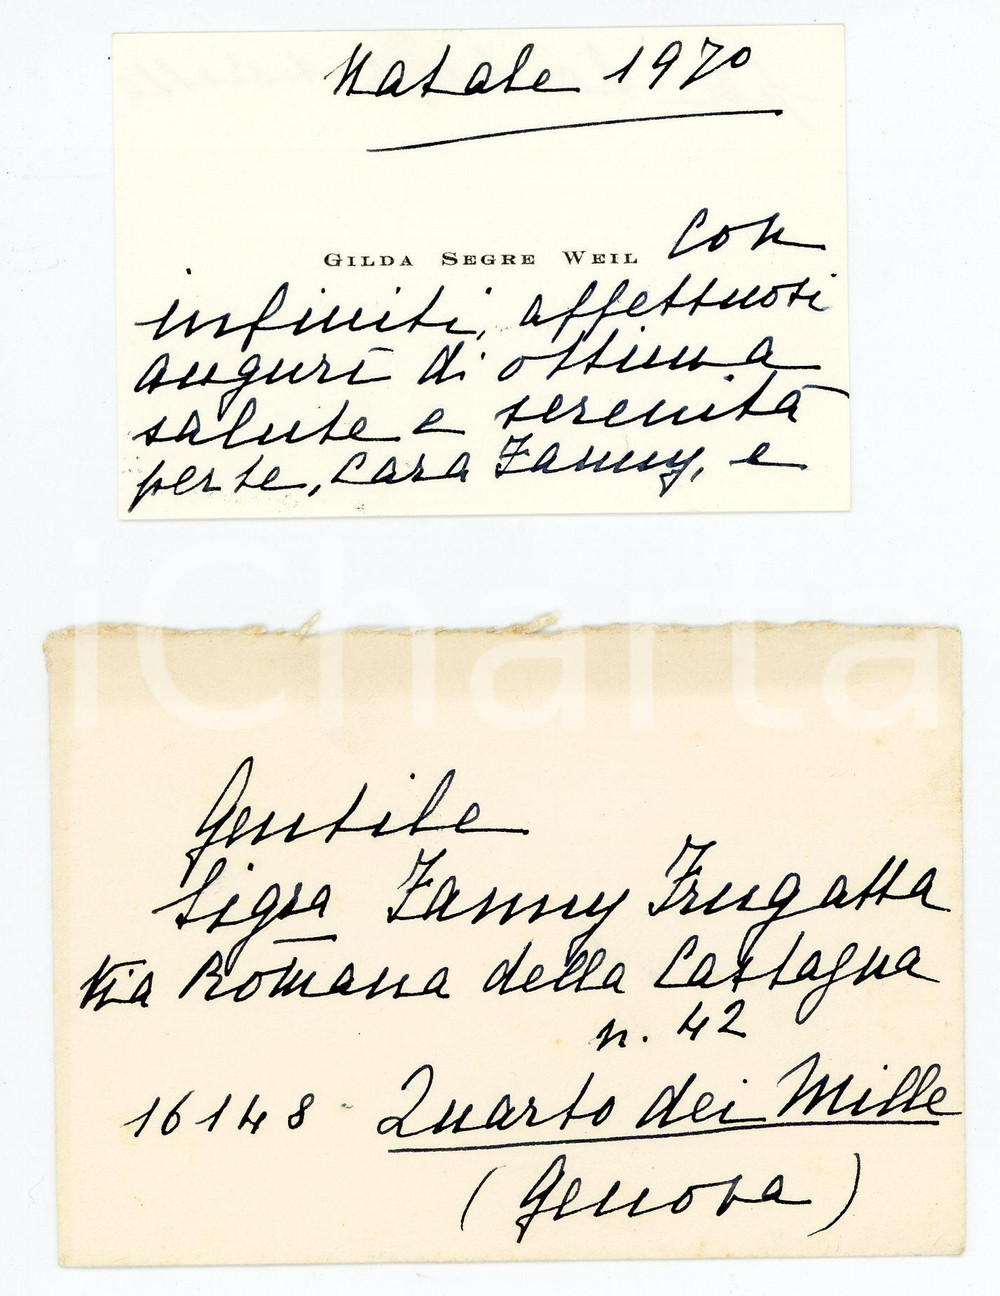 Natale 1970
GILDA SEGRE WEIL Con
infiniti, affettuosi
auguri di ottima
salute e serenità
per te, cara Fanny, e
iCharta
Gentile
Sigra Fanny Frugatta
Via Romana della Castagna
n. 42
16148 - Quarto dei Mille
(Genova)